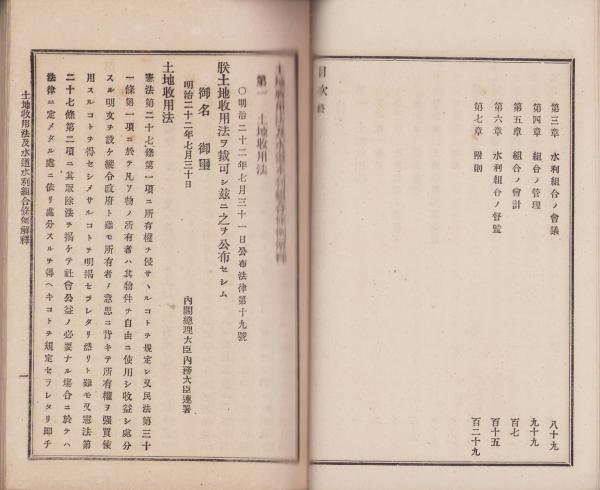 第三章 水利組合ノ會議 八十九
第四章 組合ノ管理 九十九
第五章 組合ノ會計 百七
第六章 水利組合ノ監督 百十五
第七章 附則 百二十九
目次終
土地收用法及水道水利組合條例解釋
第一 土地收用法
〇明治二十二年七月三十一日公布法律第十九號
朕土地收用法ヲ裁可シ茲ニ之ヲ公布セシム
御名 御璽
明治二十二年七月三十日
內閣總理大臣內務大臣連署
土地收用法
憲法第二十七條第一項ニ所有權ヲ侵サヽルコトヲ規定シ又民法第三十
一條第一項ニ於テ凡ソ物ノ所有者ハ其物件ヲ自由ニ使用シ收益シ處分
スル明文ヲ設ケ縱令政府ト雖モ所有者ノ意思ニ背キテ所有權ヲ强買使
用スルコトヲ得セシメサルコトヲ明揭セラレタリ然リト雖モ又憲法第
二十七條第二項ニ其取除法ヲ揭ケテ社會公益ノ必要ナル塲合ニ於テハ
法律ニ定メタル處ニ依リ處分スルヲ得ヘキコトヲ規定セラレタリ卽チ
土地收用法及水道水利組合條例解釋
一